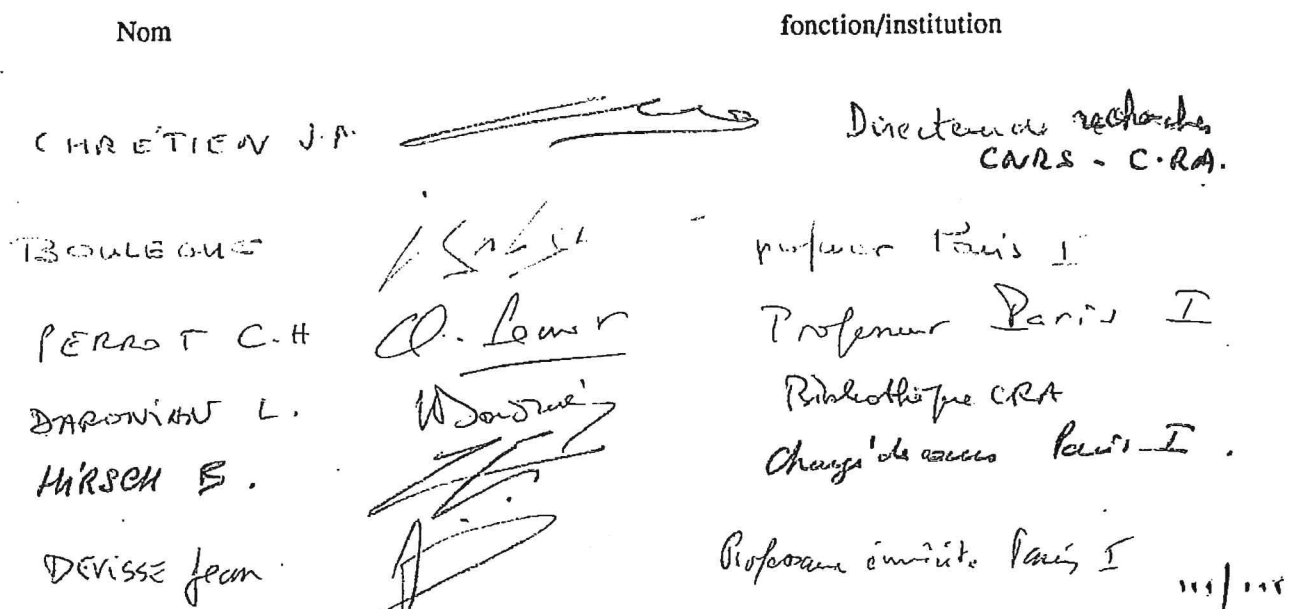 Nom fonction/institution
CHRÉTIEN J.P. Directeur de recherches
CNRS - C.RA.
BOULEGUE professeur Paris I
PERROT C.H Professeur Paris I
DARONIAN L. Bibliothèque CRA
HIRSCH B. Chargé de cours Paris-I.
DEVISSE Jean Professeur émérite Paris I
.../...